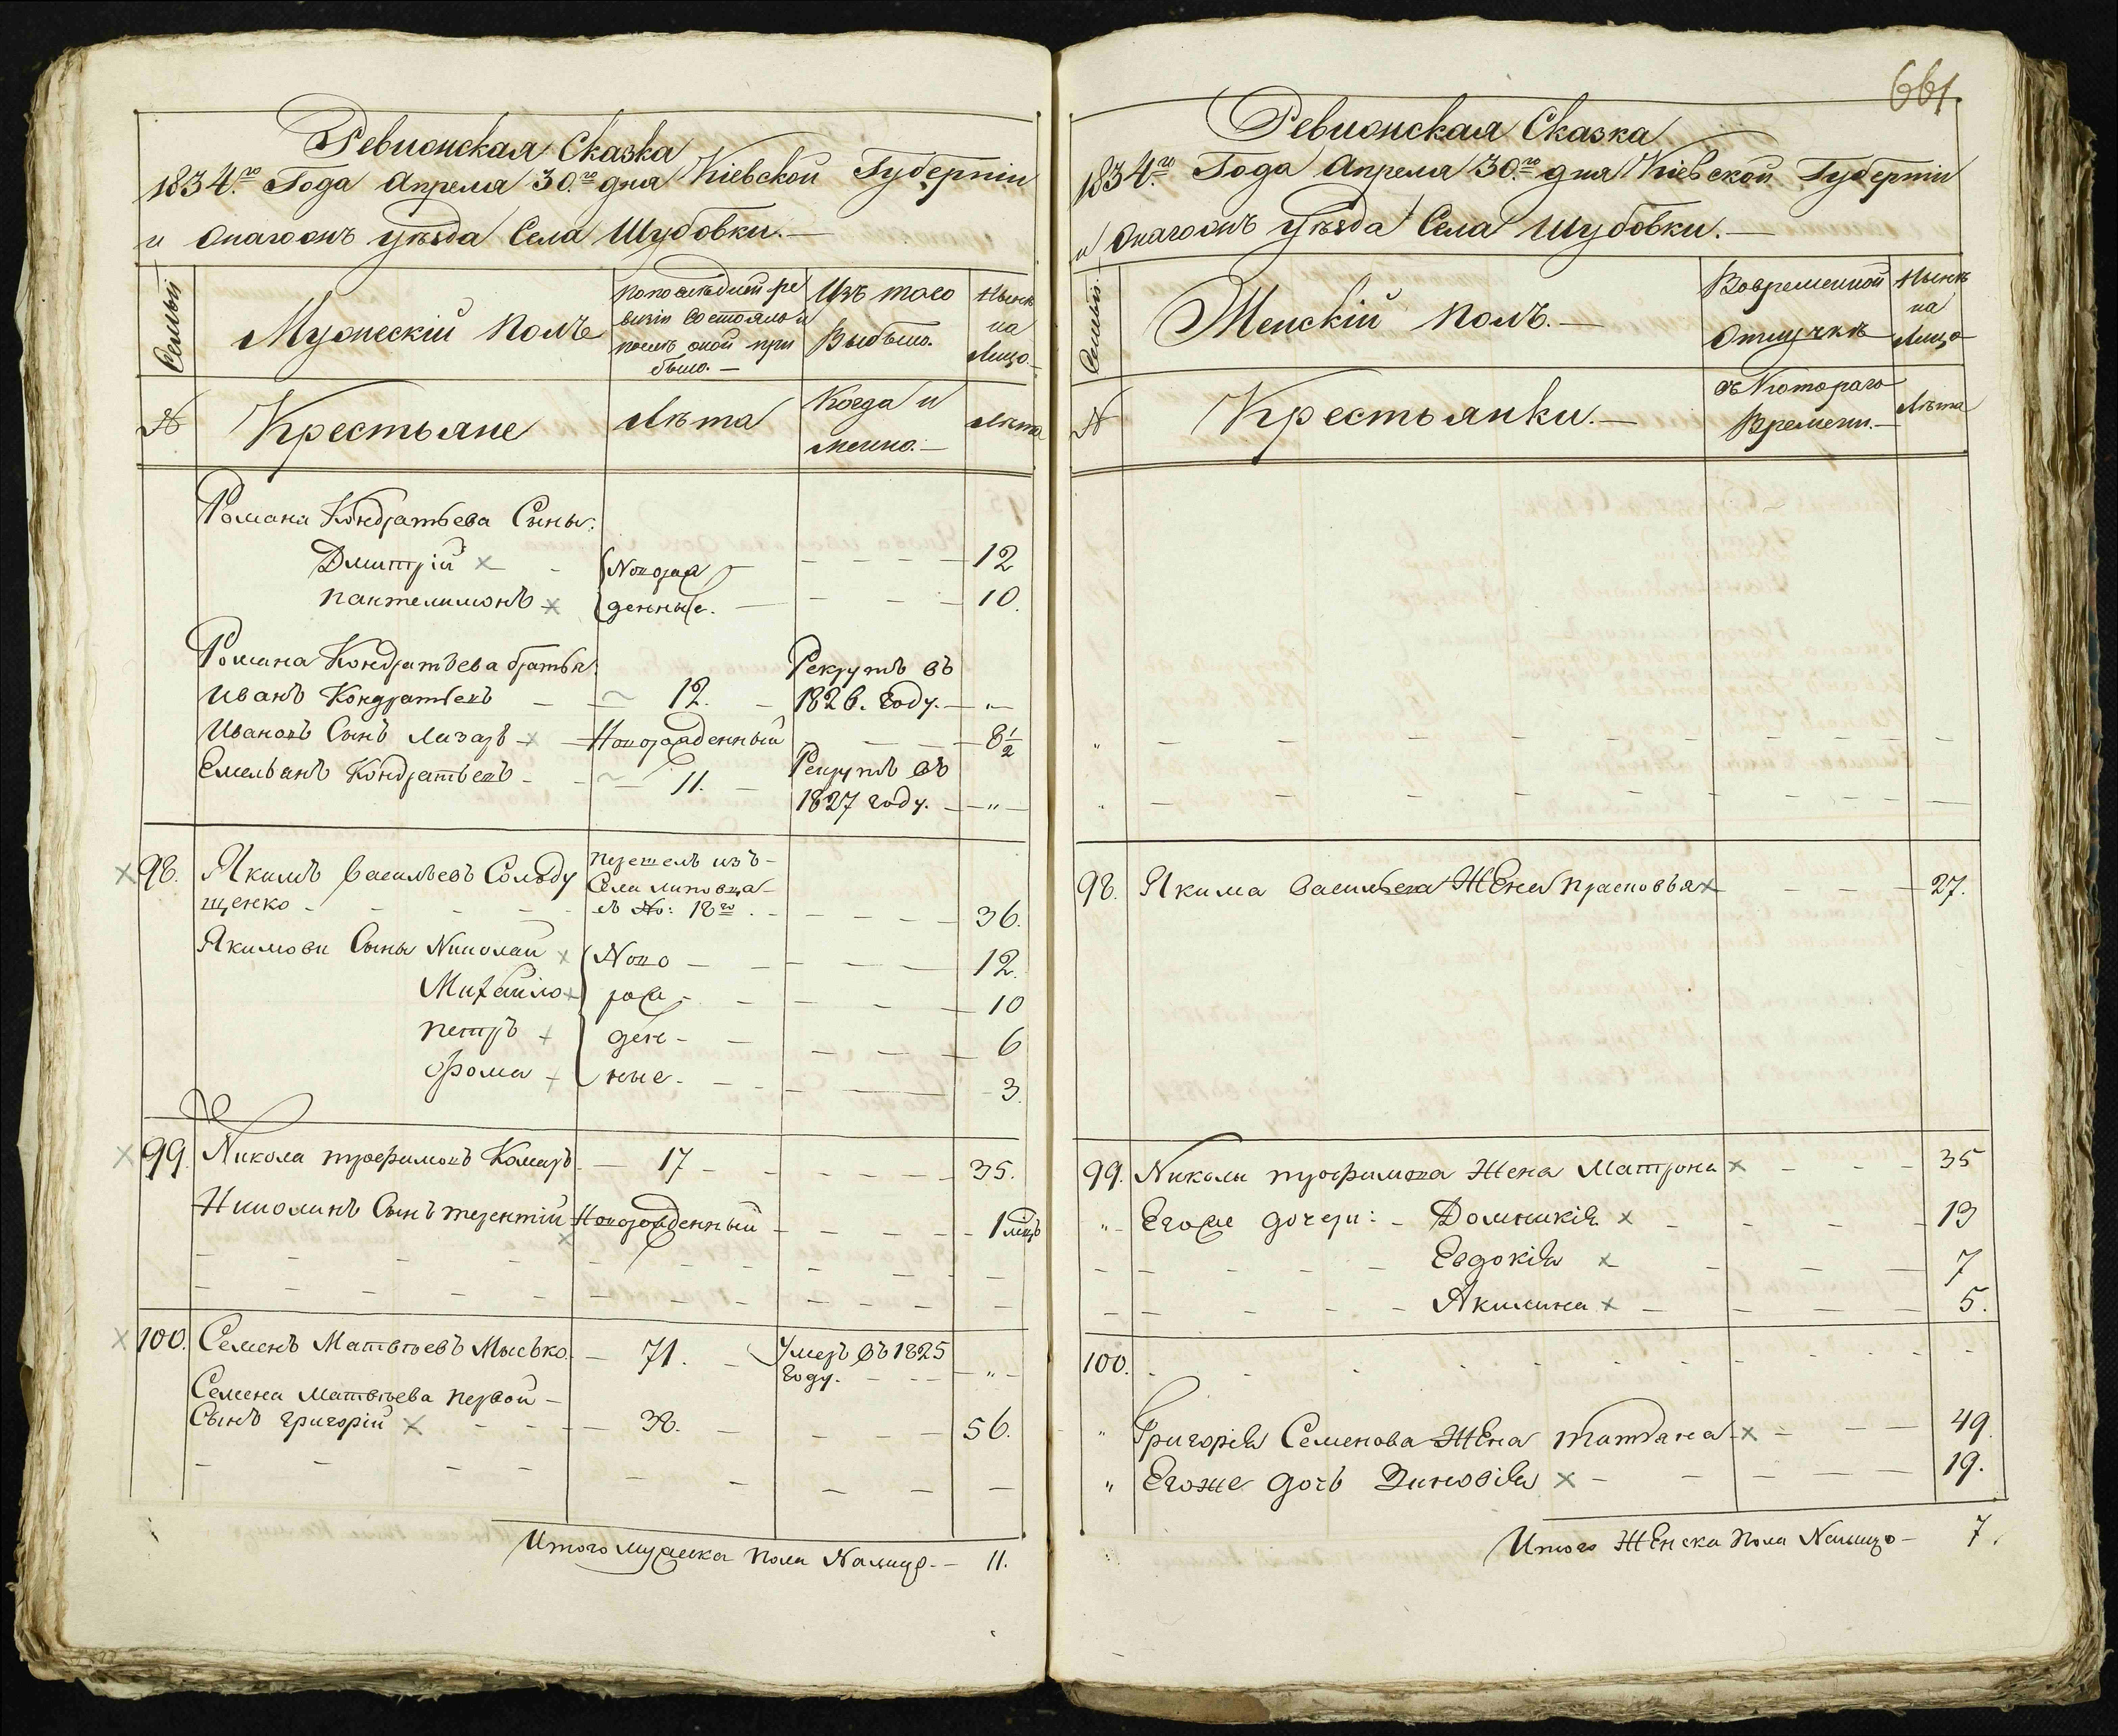 Ревионская Сказка
1834.го Года Апреля 30.го дня Кіевской Губерніи
и Онагожъ уѣзда Села Шубовки.—
Семьи
Мужескій полъ
По послѣдней ре
визіи состояло и
послѣ оной при
было.—
Изъ того
Выбыло.
Нынѣ
на
Лицо
№
Крестьяне
Лѣта
Когда и
имено.—
Лѣта
Романа Кондратьева Сыны:
Дмитрій × - {Новорож - - - - 12
Пантелимонъ × {денные. - - - 10.
Романа Кондратьева братья: Рекрутъ въ
Иванъ Кондратьевъ - ~ 12. - 1826. году. - „ -
Ивановъ Сынъ Лизаръ × - Новорожденный - - - 8 1/2
Емельянъ Кондратьевъ - ~ 11. - Рекрутъ въ
1827 году. - „ -
×98. Якимъ Васильевъ Сольду перешелъ изъ -
щенко - - - Села Липовца -
съ №: 18го. - - - - 36.
Якимови Сыны Николай × {Ново - - - - 12.
Михайло × рож - - - - 10
Петръ × ден - - - - 6
Ѳома × ные - - - - 3.
×99. Никола трофимовъ Комаръ - 17 - - - - 35.
Николинъ Сынъ терентій × Новорожденный - - - - 1 мсцъ
×100. Семенъ Матвѣевъ Мысько - 71. - Умеръ въ 1825
году. - - - „ -
Семена Матвѣева первой -
Сынъ григорій × - - - 38. - - - - 56.
Итого мужеска пола Налицо. - 11.
661
Ревионская Сказка
1834.го Года Апреля 30.го дня Кіевской Губерніи
и Онагожъ уѣзда Села Шубовки.—
Семьи.
Женскій полъ.—
Во временной
Отлучкѣ
Нынѣ
на
Лицо
№
Крестьянки.—
съ Котораго
Времени.—
Лѣта
98. Якима Васильева Жена Прасковья × - - - 27.
99. Николы трофимова Жена Матрона × - - - 35
„ - Егоже дочери: - Домникія × - - - 13
Евдокія × - - - 7
Акилина × - - - 5.
100.
„ Григорія Семенова Жена татяна × - - - 49.
„ Егоже дочь Зиновія × - - - 19.
Итого Женска пола Налицо - 7.